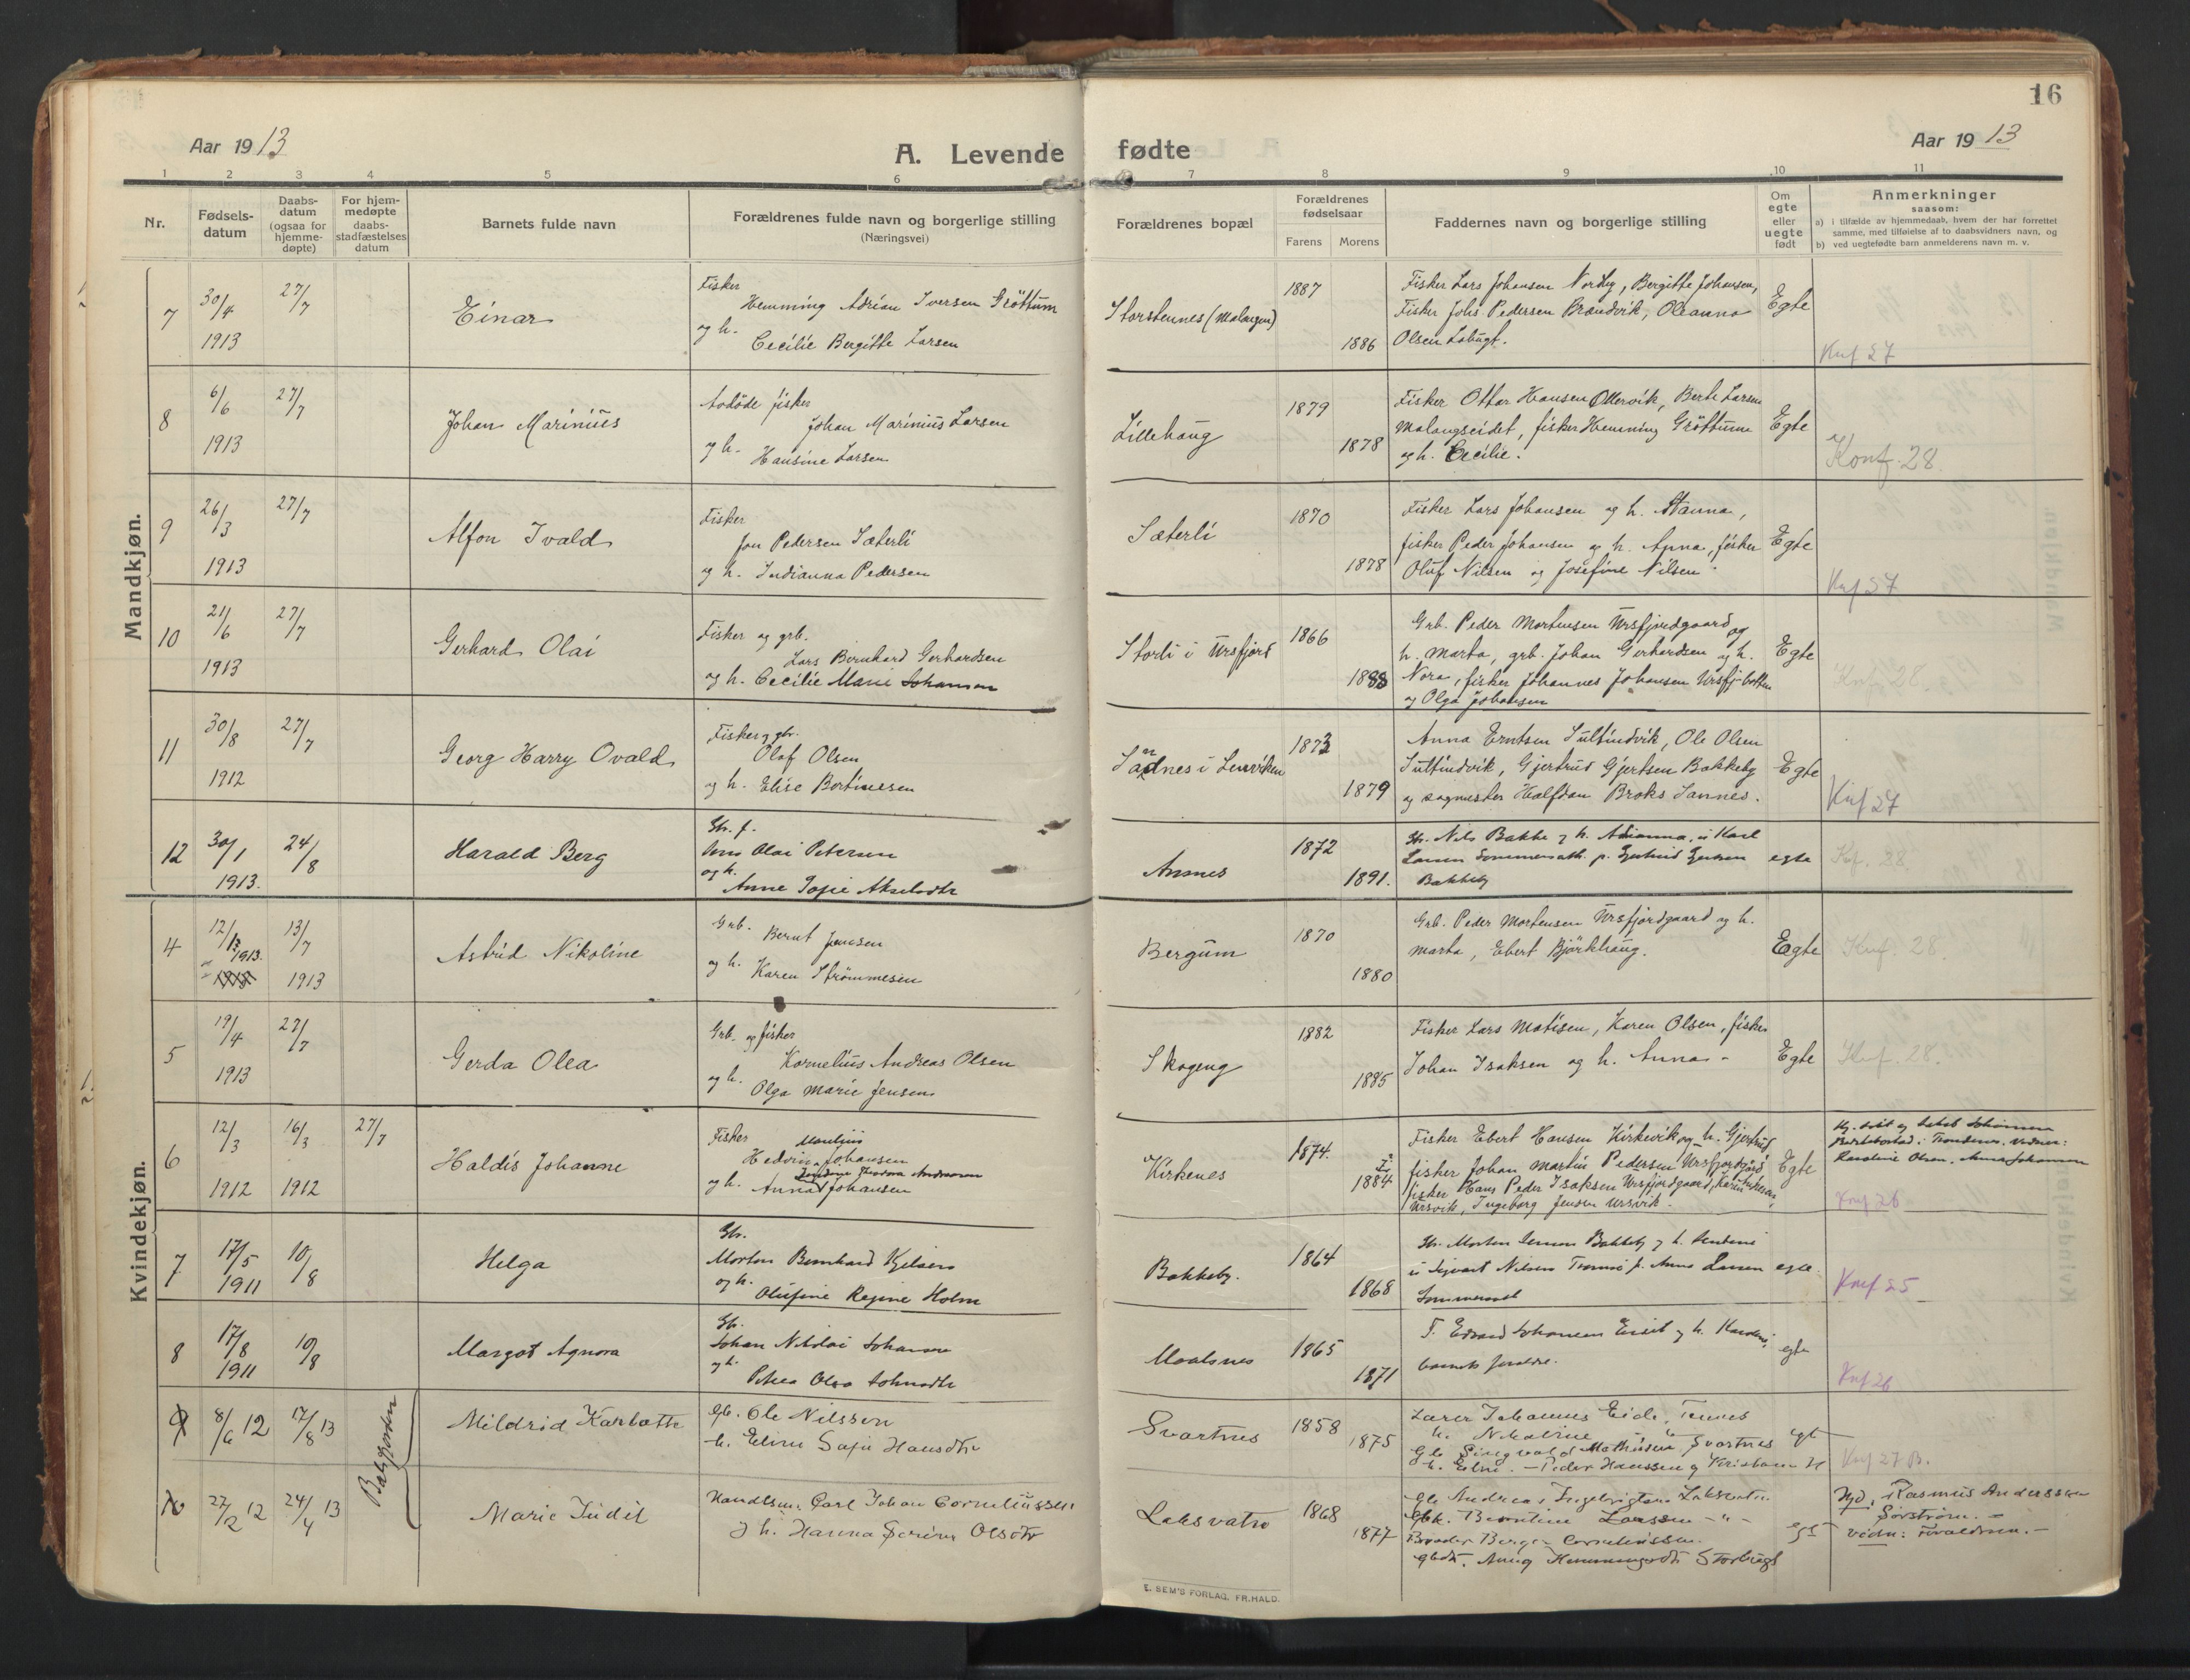 16
Aar 1913
A. Levende fødte
Aar 1913
1 2 3 4 5 6 7 8 9 10 11
Nr.
Fødsels-
datum
Daabs-
datum
(ogsaa for
hjemme-
døpte)
For hjem-
medøpte
daabs-
stadfæstelses
datum
Barnets fulde navn
Forældrenes fulde navn og borgerlige stilling
(Næringsvei)
Forældrenes bopæl
Forældrenes
fødselsaar
Farens Morens
Faddernes navn og borgerlige stilling
Om
egte
eller
uegte
født
Anmerkninger
saasom:
a) i tilfælde av hjemmedaab, hvem der har forrettet
samme, med tilføielse af to daabsvidners navn, og
b) ved uegtefødte barn anmelderens navn m. v.
Mandkjøn.
7
30/4
1913
27/7
Einar
Fisker
Hemming Adrian Iversen Gröttum
og h.
Cecilie Bergitte Larsen
Storstennes (Malangen)
1887
1886
Fisker Lars Johansen Nordby, Bergitte Johansen,
Fisker Johs Pedersen Brandvik, Oleanna
Olsen Løbugt.
Egte
Knf 27
8
6/6
1913
27/7
Johan Marinius
Avdöde fisker
Johan Marinius Larsen
og h.
Hansine Larsen
Lillehaug
1879
1878
Fisker Ottar Hansen Ollervik, Berte Larsen
Malangseidet, fisker Hemming Gröttum
og h. Cecilie.
Egte
Konf. 28.
9
26/3
1913
27/7
Alfon Ivald
Fisker
Jon Pedersen Sæterli
og h. Indianna Pedersen
Sæterli
1870
1878
Fisker Lars Johansen og h. Hanna,
fisker Peder Johansen og h. Anna, fisker
Oluf Nilsen og Josefine Nilsen.
Egte
Knf 27
10
21/6
1913
27/7
Gerhard Olai
Fisker og grb.
Lars Bernhard Gerhardsen
og h. Cecilie Marie Johansen
Storli i Ursfjord
1866
1888
Grb. Peder Mortensen Ursfjordgaard og
h. Marta, grb. Johan Gerhardsen og h.
Nora, fisker Johannes Johansen Ursfj.botten
og Olga Johansen
Egte
Knf 28.
11
30/8
1912
27/7
Georg Harry Ovald
Fisker og gbr.
Olaf Olsen
og h. Elise Bertinesen
Sandnes i Lenviken
1873
1879
Anna Erntsen Sultindvik, Ole Olsen
Sultindvik, Gjertrud Gjertsen Bakkeby
og sagmester Halfdan Broks Sannes.
Egte
Knf 27
12
30/1
1913.
24/8
Harald Berg
Gbr. f.
Jens Olai Petersen
og h.
Anne Sofie Akseldtr
Ansnes
1872
1891.
Gbr. Nils Bakke og h. Adrianna, u Karl
Larsen p. Gjertrud Gjertsen
Bakkeby
egte
Kf. 28
Kvindekjøn.
4
12/
1913.
13/7
1913
Astrid Nikoline
Grb. Bernt Jensen
og h. Karen Strömmesen
Bergum
1870
1880
Grb. Peder Mortensen Ursfjordgaard og h.
Marta, Ebert Bjørkhaug.
Egte
Knf. 28.
5
19/4
1913
27/7
Gerda Olea
Grb. og fisker
Kornelius Andreas Olsen
og h.
Olga Marie Jensen
Skogeng
1882
1885
Fisker Lars Matisen, Karen Olsen, fisker
Johan Isaksen og h. Anna
Egte
Knf. 28.
6
12/3
1912
16/3
1912
27/7
Haldis Johanne
Fisker
Hedvin Johansen
og h. Anna Johansen
Kirkenes
1874.
1884
Fisker Ebert Hansen Kirkevik og h. Gjertrud
fisker Johan Martin Pedersen Ursfjordgård
fisker Hans Peder Isaksen Ursfjordgaard,
Ursvik, Ingeborg Jensen Ursvik.
Egte
Karoline Olsen, Anna Johansen
Knf 26
7
17/5
1911
10/8
Helga
Gbr.
Morten Bernhard
og h.
Olufine Regine Holm
Bakkeby.
1864
1868
Gbr. Morten Jensen Bakkeby og h.
u Sigvart Nilsen Tromsø p. Anna Larsen
egte.
Knf 25
8
17/8
1911
10/8
Margot Agnora
Gbr.
Johan Nikolai Johansen
og h.
Petrea Olea
1865
1871
F. Edvard Johansen og h.
barnets foreldre.
egte
Knf 26
9
8/6 12
17/8 13
Balsfjorden
Mildrid
Gb. Ole Nilssen
h. Eline Sofie Hansdtr
Svartnes
1858
1875
Lærer Johannes Eide,
h. Nikoline
Gb Mathisen, Svartnes
Peder Hanssen og
egt
Knf 27 B.
10
27/2 12
24/4 13
Marie Judit
Handlsm. Carl Johan Corneliussen
og h. Hanna Olsdtr
Laksvatn
1868
1877
Gb Andreas Laksvatn
Larssen
Corneliussen.
egt
Hjd. Rasmus Anderssen
Sørstrøm.
vidn: Forældren.
E. SEM'S FORLAG, FR.HALD.